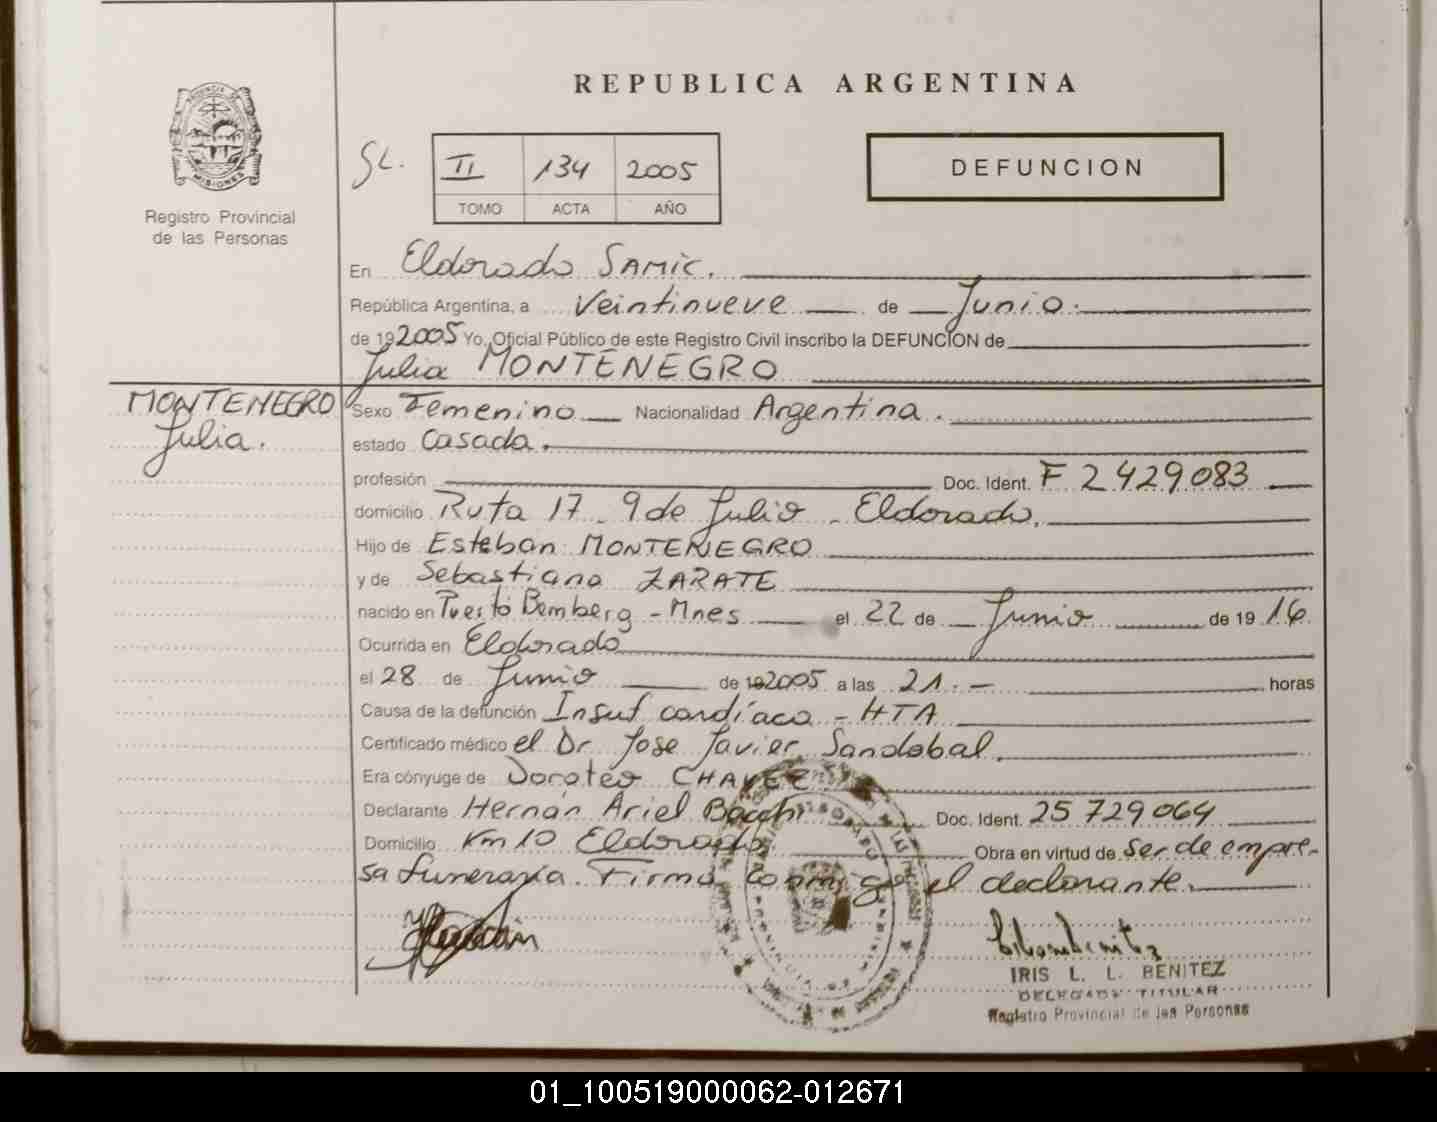 REPUBLICA ARGENTINA
PROVINCIA DE
MISIONES
Registro Provincial
de las Personas
SL.
II 134 2005
TOMO ACTA AÑO
DEFUNCION
En Eldorado SAMIC.
República Argentina, a Veintinueve de Junio.
de 192005 Yo, Oficial Público de este Registro Civil inscribo la DEFUNCION de
Julia MONTENEGRO
MONTENEGRO
Julia.
Sexo Femenino Nacionalidad Argentina.
estado Casada.
profesión Doc. Ident. F 2429083
domicilio Ruta 17 - 9 de Julio - Eldorado.
Hijo de Esteban MONTENEGRO
y de Sebastiana ZARATE
nacido en Puerto Bemberg - Mnes el 22 de Junio de 1916.
Ocurrida en Eldorado
el 28 de Junio de 192005 a las 21. - horas
Causa de la defunción Insuf cardíaca - HTA
Certificado médico el Dr Jose Javier Sandobal.
Era cónyuge de Doroteo CHAVEZ
Declarante Hernán Ariel Bacchi Doc. Ident. 25 729 064
Domicilio Km 10 Eldorado Obra en virtud de Ser de empre-
sa funeraria. Firma conmigo el declarante.
IRIS L. L. BENITEZ
DELEGADA TITULAR
Registro Provincial de las Personas
01_100519000062-012671